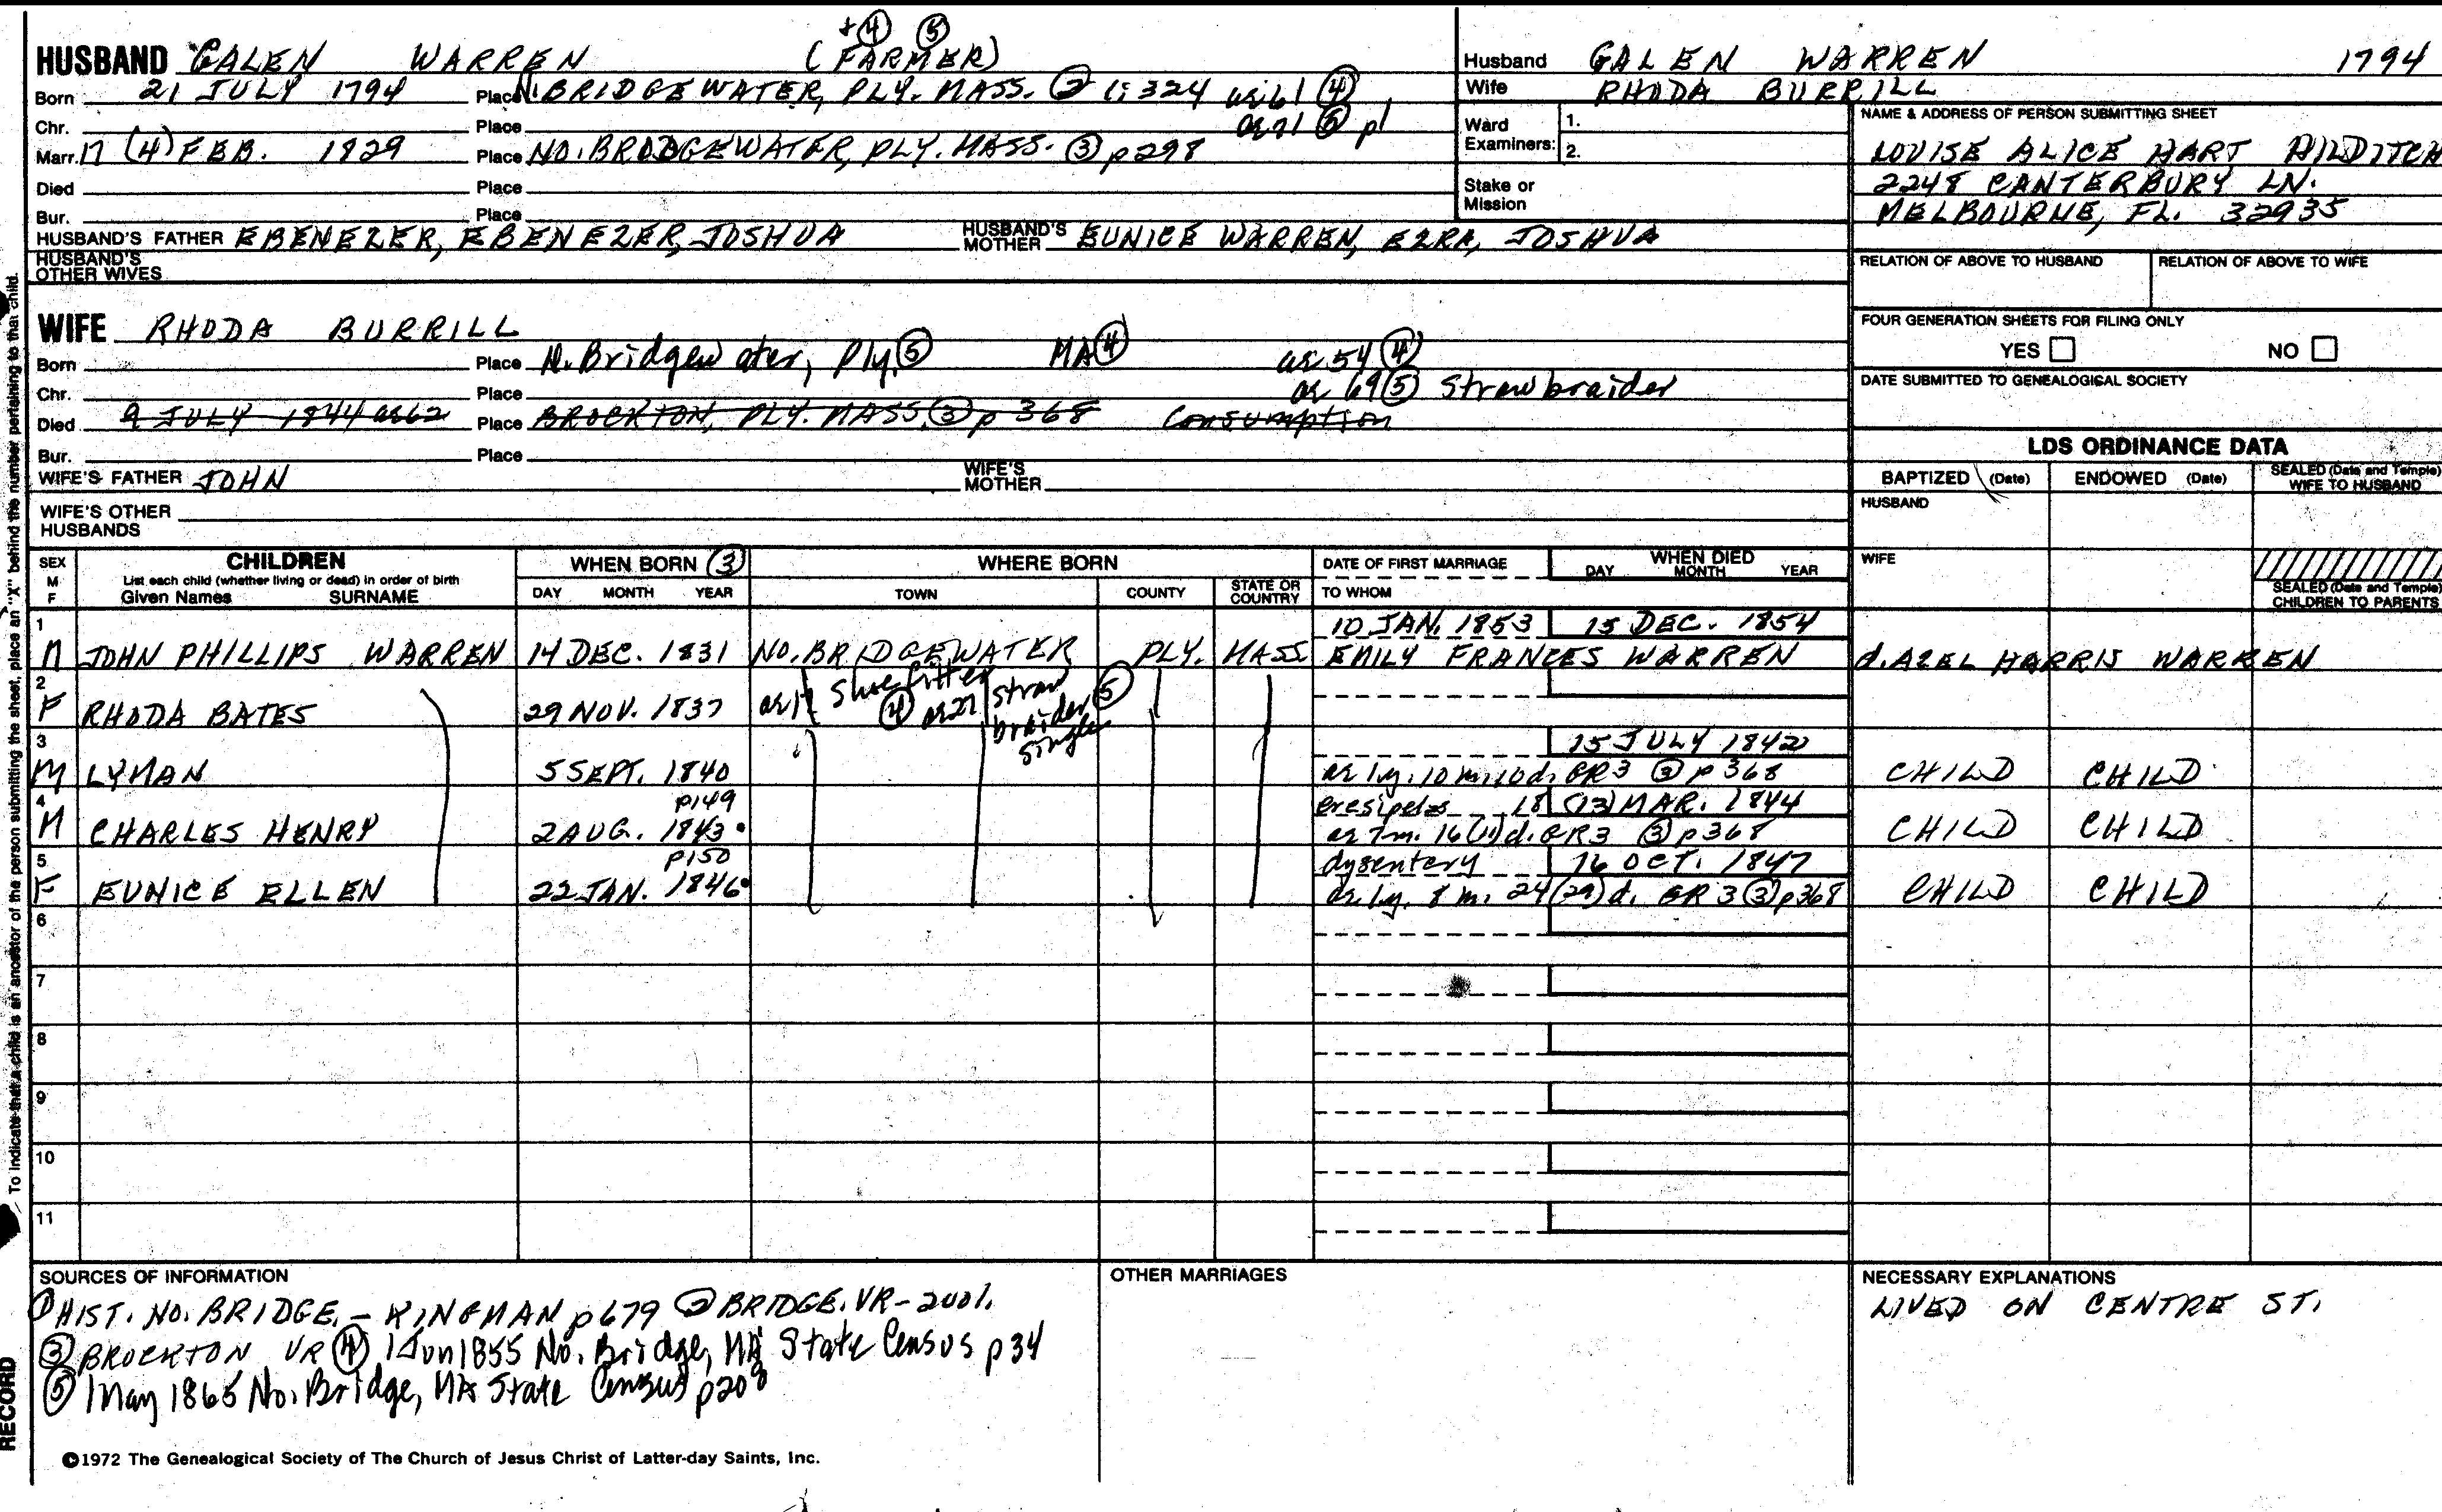 + ④ ⑤
HUSBAND GALEN WARREN (FARMER)
Born 21 JULY 1794 Place N. BRIDGEWATER, PLY. MASS. ② 1:324 as 61 ④
Chr. Place as 71 ⑤ p1
Marr. 17 (4) FEB. 1829 Place NO. BRIDGEWATER, PLY. MASS. ③ p298
Died Place
Bur. Place
HUSBAND'S FATHER EBENEZER, EBENEZER, JOSHUA HUSBAND'S MOTHER EUNICE WARREN, EZRA, JOSHUA
HUSBAND'S OTHER WIVES
Husband GALEN WARREN 1794
Wife RHODA BURRILL
Ward Examiners: 1.
2.
Stake or Mission
NAME & ADDRESS OF PERSON SUBMITTING SHEET
LOUISE ALICE HART HILDITCH
2248 CANTERBURY LN.
MELBOURNE, FL. 32935
RELATION OF ABOVE TO HUSBAND RELATION OF ABOVE TO WIFE
FOUR GENERATION SHEETS FOR FILING ONLY
YES NO
DATE SUBMITTED TO GENEALOGICAL SOCIETY
WIFE RHODA BURRILL
Born Place N. Bridgewater, Ply. ⑤ MA ④ as 54 ④
Chr. Place as 69 ⑤ Strawbraider
Died 9 JULY 1844 as 62 Place BROCKTON, PLY. MASS. ③ p 368 Consumption
Bur. Place
WIFE'S FATHER JOHN WIFE'S MOTHER
WIFE'S OTHER HUSBANDS
LDS ORDINANCE DATA
BAPTIZED (Date) ENDOWED (Date) SEALED (Date and Temple) WIFE TO HUSBAND
HUSBAND
WIFE
SEALED (Date and Temple) CHILDREN TO PARENTS
SEX M F CHILDREN WHEN BORN ③ WHERE BORN DATE OF FIRST MARRIAGE WHEN DIED
List each child (whether living or dead) in order of birth
Given Names SURNAME DAY MONTH YEAR TOWN COUNTY STATE OR COUNTRY TO WHOM DAY MONTH YEAR
1 10 JAN. 1853 15 DEC. 1854
M JOHN PHILLIPS WARREN 14 DEC. 1831 NO. BRIDGEWATER PLY. MASS EMILY FRANCES WARREN d. AZEL HARRIS WARREN
2
F RHODA BATES 29 NOV. 1837 as 17 Shoe fitter ④ as 27 straw braider ⑤ single
3 15 JULY 1842
M LYMAN 5 SEPT. 1840 as 1y. 10 m. 10 d. GR3 ③ p 368 CHILD CHILD
4 p149 eresipelas 18 (13) MAR. 1844
M CHARLES HENRY 2 AUG. 1843 as 7m. 16 (11) d. GR3 ③ p368 CHILD CHILD
5 p150 dysentery 16 OCT. 1847
F EUNICE ELLEN 22 JAN. 1846 as 1y. 8 m. 24 (29) d. GR 3 ③ p368 CHILD CHILD
6
7
8
9
10
11
SOURCES OF INFORMATION
① HIST. NO. BRIDGE. - KINGMAN p679 ② BRIDGE. VR - 2 vol.
③ BROCKTON VR ④ 1 Jun 1855 No. Bridge, MA State Census p 34
⑤ 1 May 1865 No. Bridge, MA State Census p20
OTHER MARRIAGES
NECESSARY EXPLANATIONS
LIVED ON CENTRE ST.
©1972 The Genealogical Society of The Church of Jesus Christ of Latter-day Saints, Inc.
To indicate that a child is an ancestor of the person submitting the sheet, place an "X" behind the number pertaining to that child.
RECORD